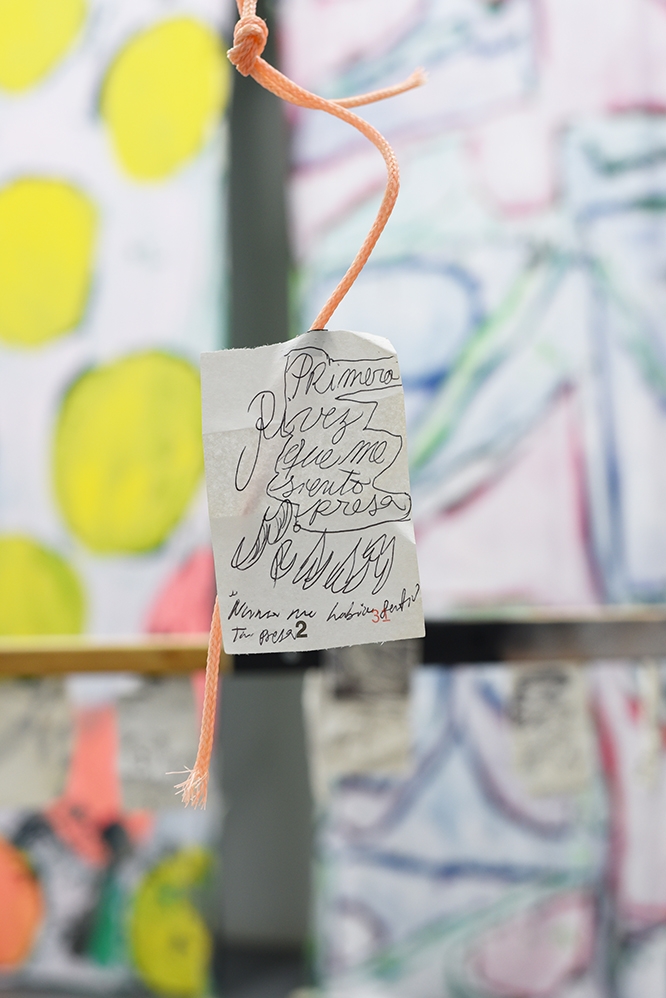 Primera
vez
que me
siento
presa
Nunca me habia sentido
31
tan presa 2